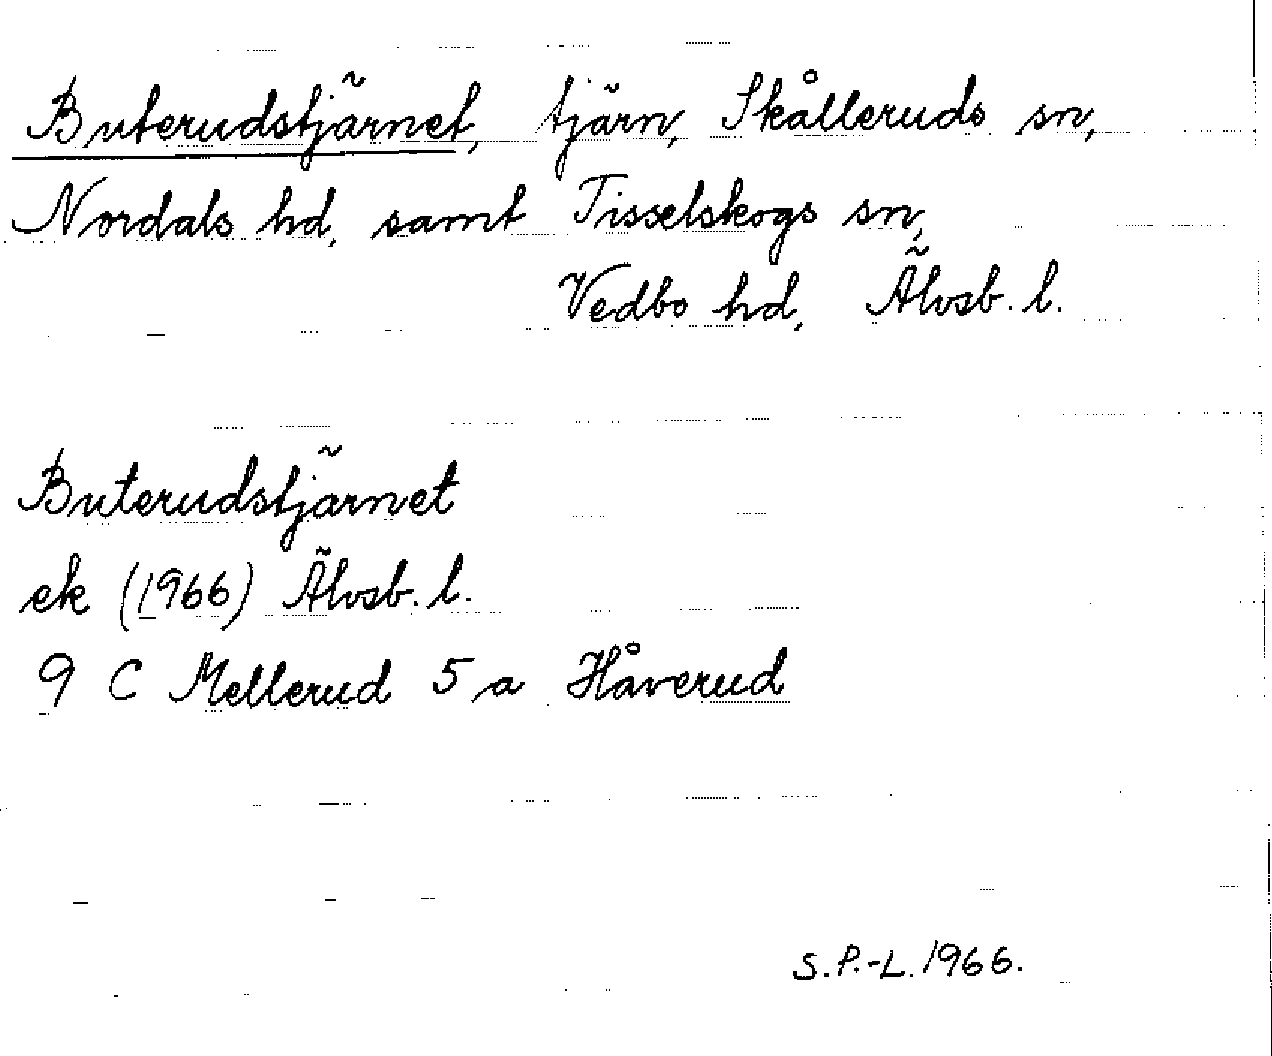 Buterudstjärnet, tjärn, Skålleruds sn,
Nordals hd, samt Tisselskogs sn,
Vedbo hd, Älvsb. l.
Buterudstjärnet
ek (1966) Älvsb. l.
9 C Mellerud 5 a Håverud
S.P.-L. 1966.